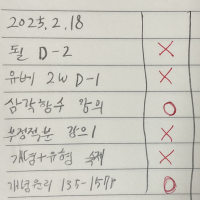 2025. 2. 18
뒬 D-2 X
유베 2W D-1 X
삼각함수 강의 O
부정적분 강의1 X
개념+유형 숙제 X
개념원리 135-157p O